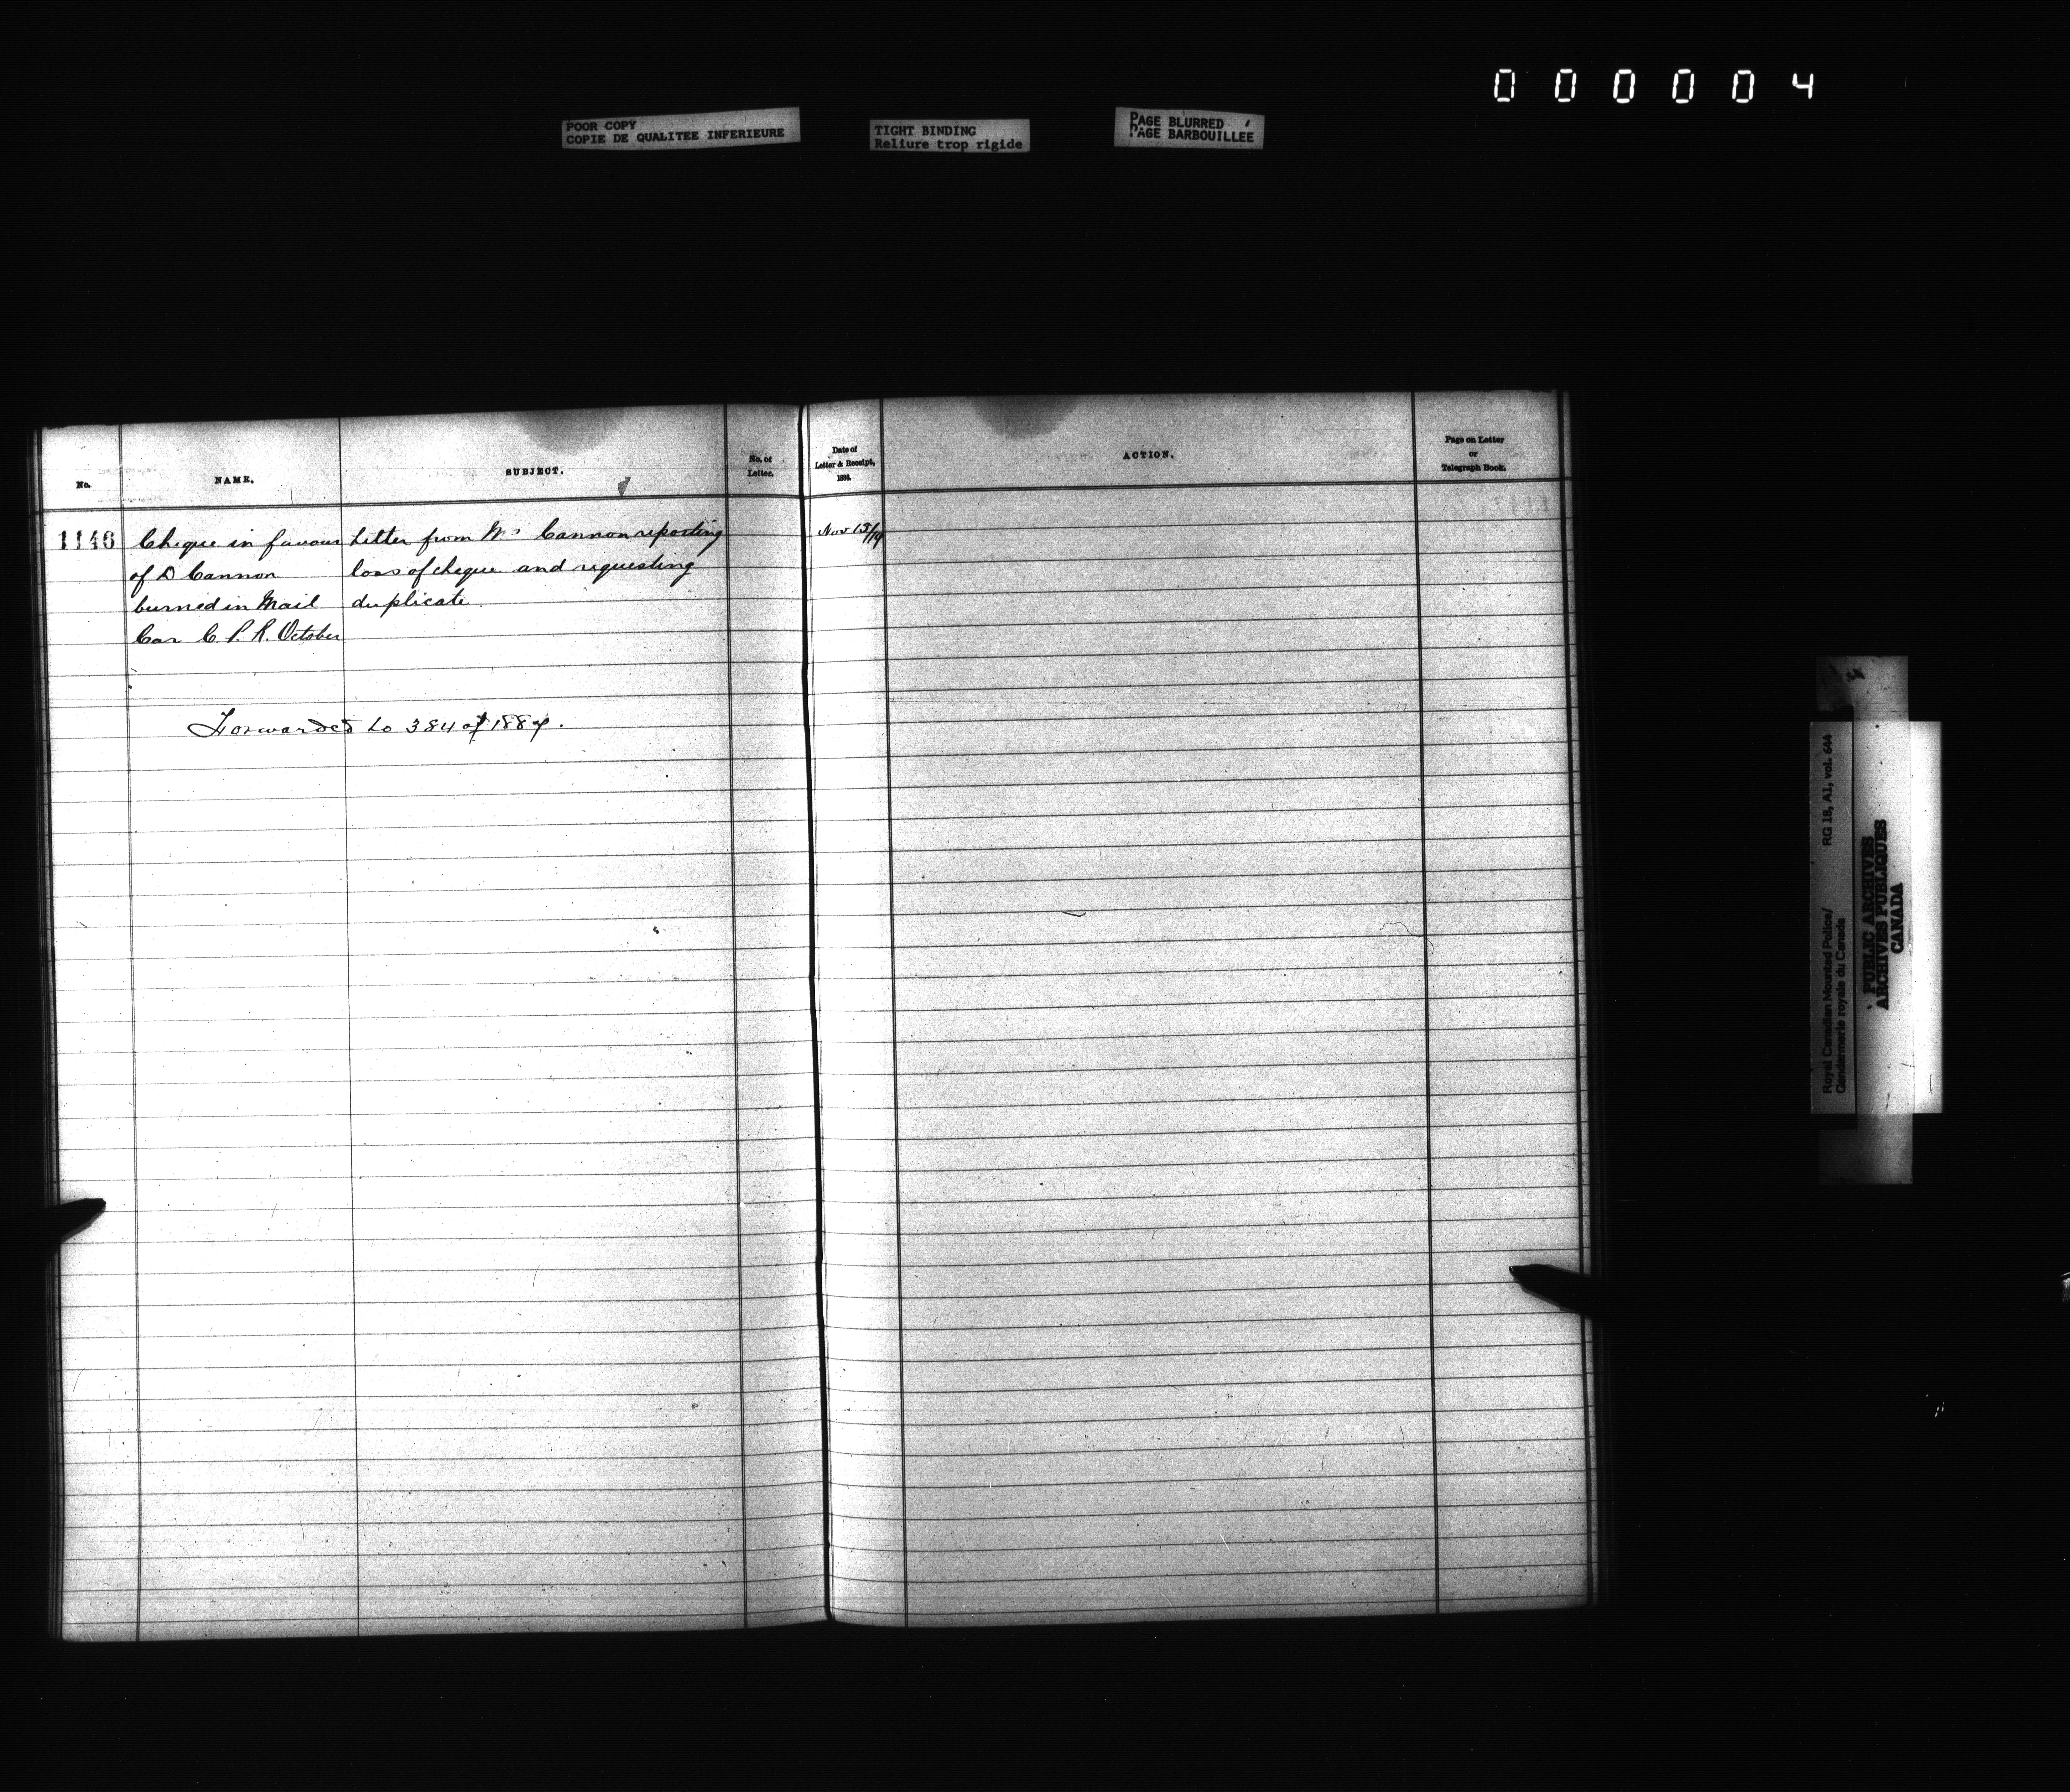 000004
POOR COPY
COPIE DE QUALITEE INFERIEURE
TIGHT BINDING
Reliure trop rigide
PAGE BLURRED
PAGE BARBOUILLEE
No.
NAME.
SUBJECT.
No. of
Letter.
Date of
Letter & Receipt,
188
ACTION.
Page on Letter
or
Telegraph Book.
1146
Cheque in favour
of D Cannon
burned in Mail
Car C. P. R. October
Letter from Mr Cannon reporting
loss of cheque and requesting
duplicate
Nov 15/19
Forwarded to 384 of 1887.
Royal Canadian Mounted Police/
Gendarmerie royale du Canada
RG 18, A1, vol. 644
PUBLIC ARCHIVES
ARCHIVES PUBLIQUES
CANADA